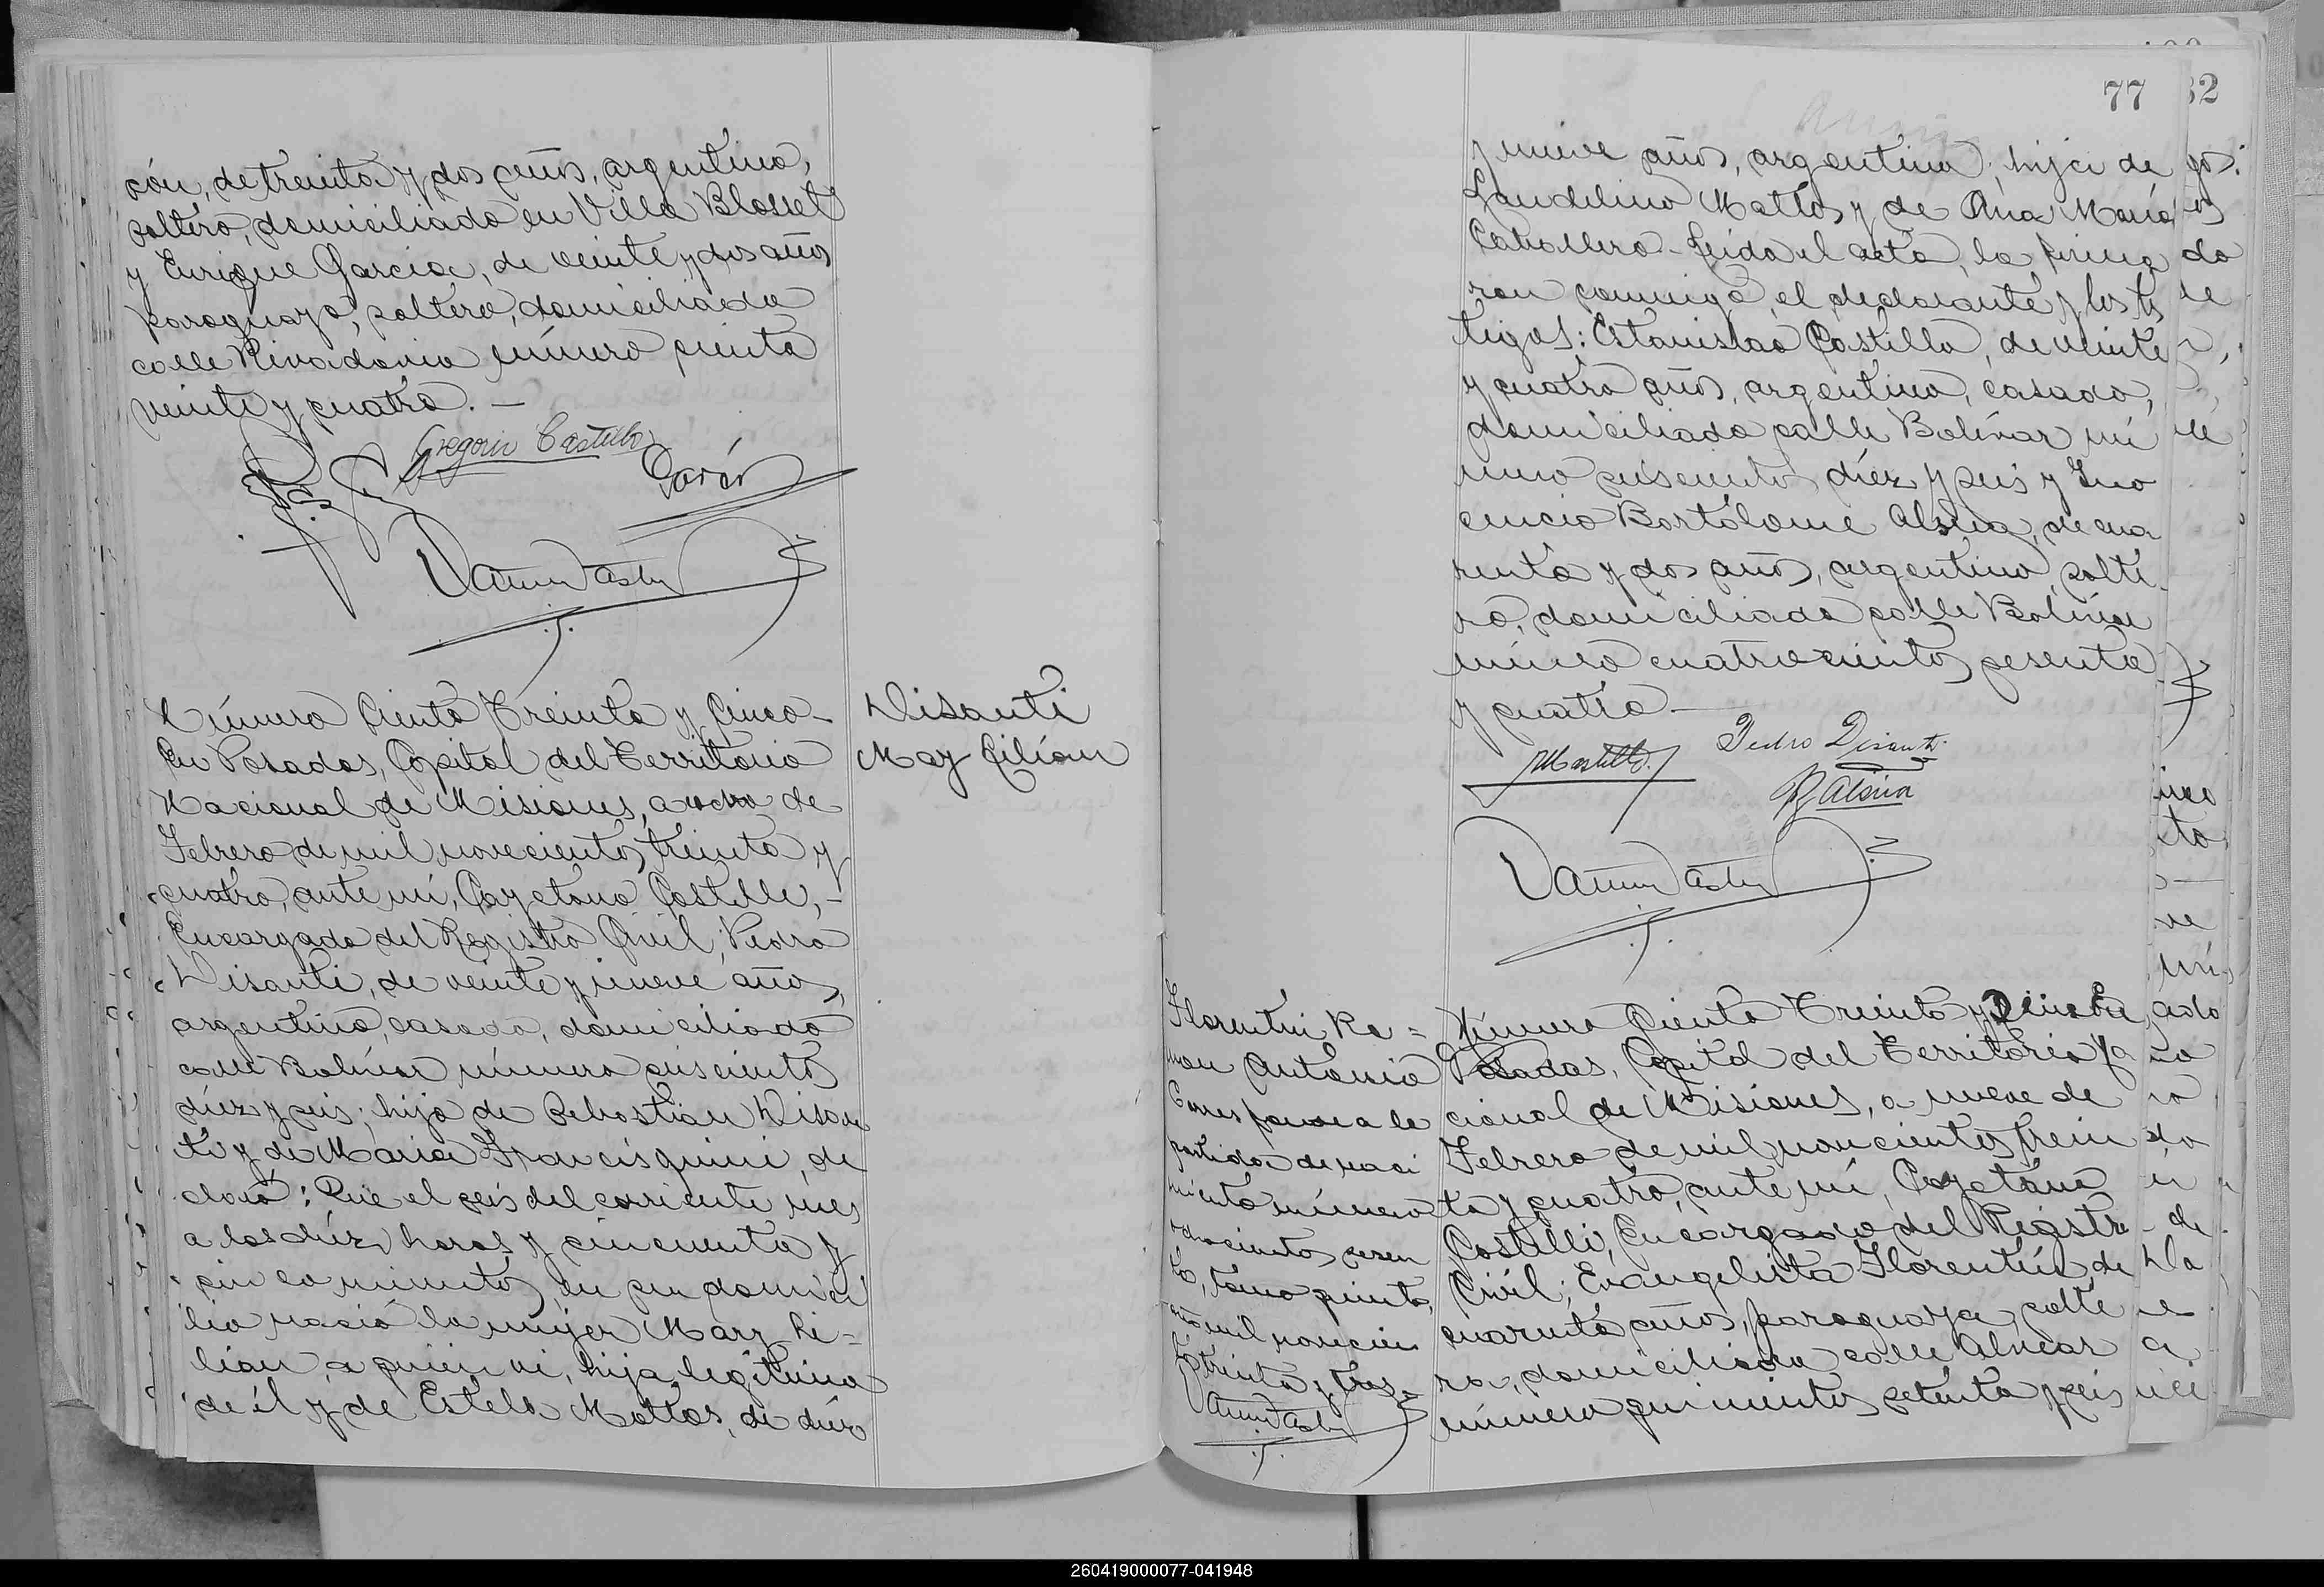 ción, de treinta y dos años, argentino,
soltero, domiciliado en Villa Blosset
y Enrique Garcia, de veinte y dos años
paraguayo, soltero, domiciliado
calle Rivadavia número ciento
veinte y cuatro. —
Gregorio Castillo
Número Ciento Treinta y Cinco—
En Posadas, Capital del Territorio
Nacional de Misiones, a ocho de
Febrero de mil novecientos treinta y
cuatro, ante mí, Cayetano Castelli,—
Encargado del Registro Civil; Pedro
Disanti, de veinte y nueve años,
argentino, casado, domiciliado
calle Bolívar número seiscientos
diez y seis; hijo de Sebastián Disan
ti y de Maria Francisquini, de
claró: Que el seis del corriente mes
a las diez horas y cincuenta y
cinco minutos, en su domici
lio nació la mujer Mary Li=
lian, a quien vi, hija legítima
de él y de Estela Mattos, de diez
Disanti
Mary Lilian
77
y nueve años, argentina; hija de
Laudelino Mattos y de Ana María
Caballero- Leida el acta, la firma
ron conmigo, el declarante y los tes
tigos: Estanislao Castillo, de veinte
y cuatro años, argentino, casado,
domiciliado calle Bolívar nú
mero seiscientos diez y seis y Ino
cencio Bartólome Alsina, de cua
renta y dos años, argentino, solte
ro, domiciliado calle Bolívar
número cuatrocientos sesenta
y cuatro—
Pedro Disanti
B Alsina
Florentin Ra=
mon Antonio
Corresponde a la
partida de naci
miento número
ochocientos sesen
ta, tomo quinto,
año mil novecien
tos treinta y tres.
Número Ciento Treinta y
Posadas, Capital del Territorio Na
cional de Misiones, a nueve de
Febrero de mil novecientos trein
ta y cuatro, ante mí, Cayetano
Castelli, Encargado del Registro
Civil; Evangelista Florentín, de
cuarenta años, paraguaya, solte
ra, domiciliada calle Alvear
número quinientos setenta y seis
82
260419000077-041948